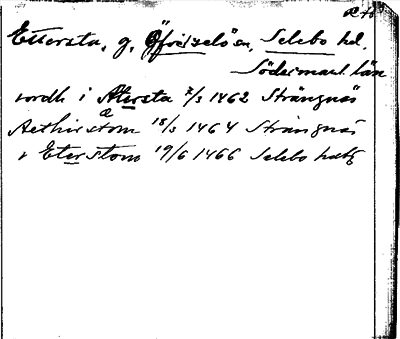 Ettersta, g, Öfverselö sn, Selebo hd,
Södermanl. län
nordh i Atersta 7/3 1462 Strängnäs
a
Aethirstom 18/3 1464 Strängnäs
i Eterstom 19/6 1466 Selebo